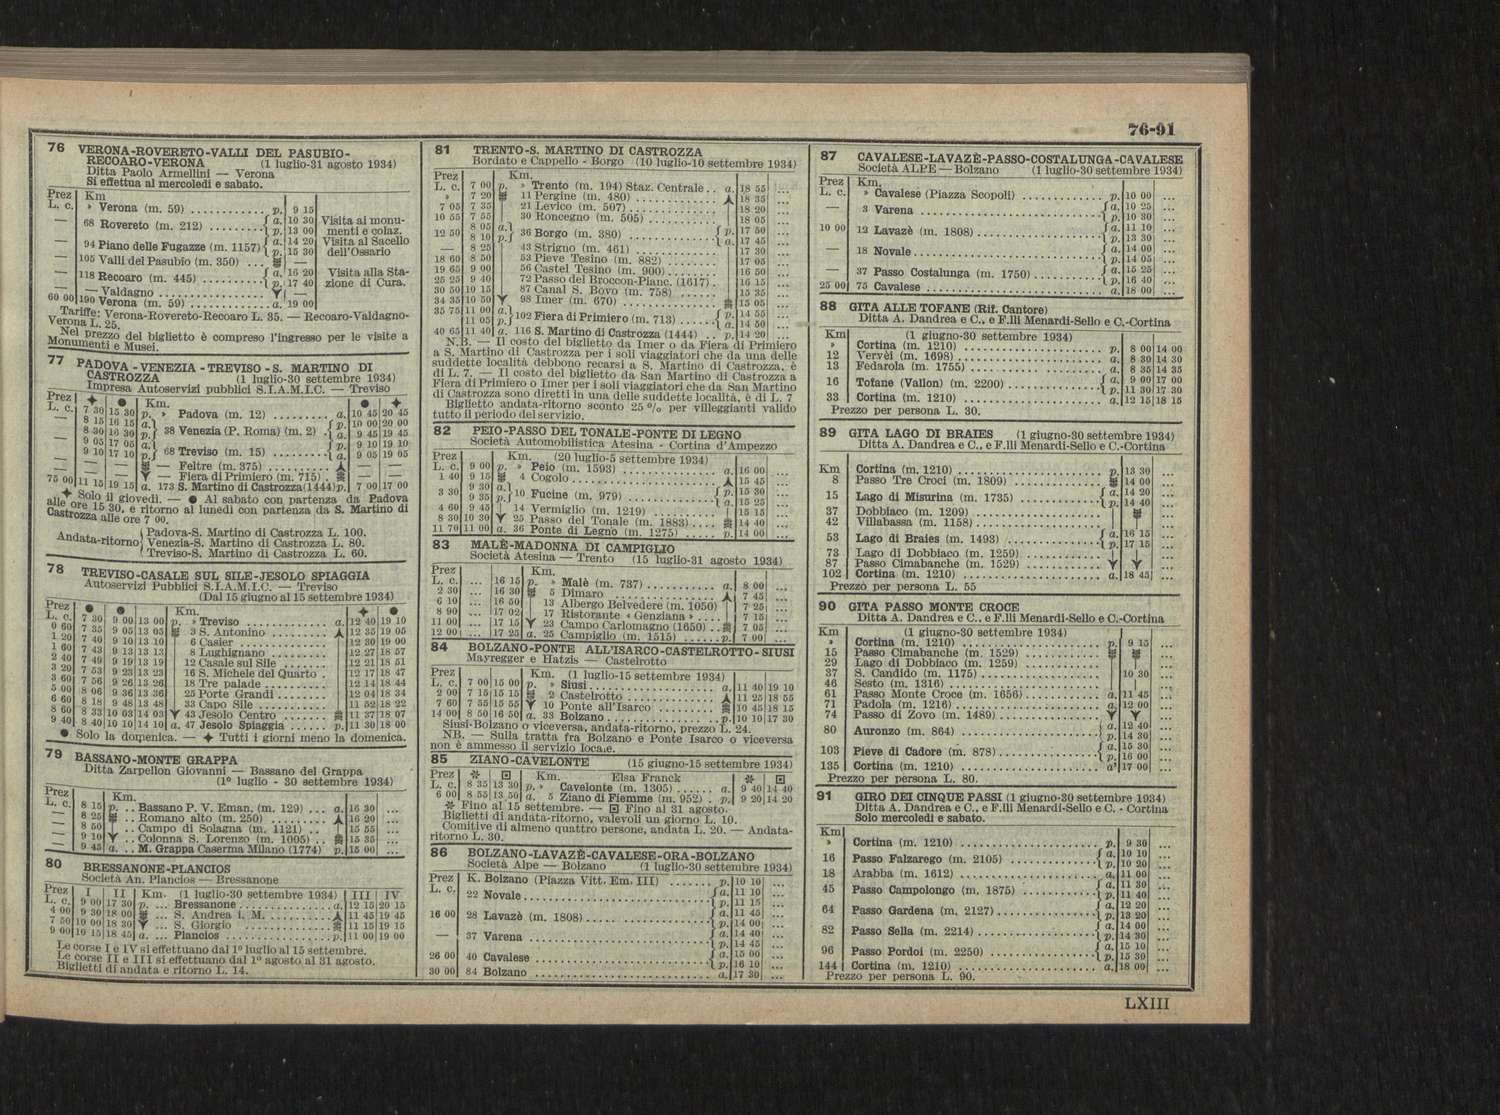 76-91
76 VERONA-ROVERETO-VALLI DEL PASUBIO-
RECOARO-VERONA (1 luglio-31 agosto 1934)
Ditta Paolo Armellini — Verona
Si effettua al mercoledì e sabato.
Prez Km
L. c. » Verona (m. 59) p. 9 15
— 68 Rovereto (m. 212) a. 10 30 Visita ai monu-
p. 13 00 menti e colaz.
— 94 Piano delle Fugazze (m. 1157) a. 14 20 Visita al Sacello
p. 15 30 dell'Ossario
— 105 Valli del Pasubio (m. 350) —
— 118 Recoaro (m. 445) a. 16 20 Visita alla Sta-
p. 17 40 zione di Cura.
— — Valdagno —
60 00 190 Verona (m. 59) a. 19 00
Tariffe: Verona-Rovereto-Recoaro L. 35. — Recoaro-Valdagno-
Verona L. 25.
Nel prezzo del biglietto è compreso l'ingresso per le visite a
Monumenti e Musei.
77 PADOVA - VENEZIA - TREVISO - S. MARTINO DI
CASTROZZA (1 luglio-30 settembre 1934)
Impresa Autoservizi pubblici S.I.A.M.I.C. — Treviso
Prez ✦ ● Km. ● ✦
L. c. 7 30 15 30 p. » Padova (m. 12) a. 10 45 20 45
— 8 15 16 15 a. 38 Venezia (P. Roma) (m. 2) p. 10 00 20 00
— 8 30 16 30 p. a. 9 45 19 45
— 9 05 17 05 a. 68 Treviso (m. 15) p. 9 10 19 10
— 9 10 17 10 p. a. 9 05 19 05
— — — — Feltre (m. 375) — —
— — — — Fiera di Primiero (m. 715) — —
75 00 11 15 19 15 a. 173 S. Martino di Castrozza (1444) p. 7 00 17 00
✦ Solo il giovedì. — ● Al sabato con partenza da Padova
alle ore 15 30, e ritorno al lunedì con partenza da S. Martino di
Castrozza alle ore 7 00.
Andata-ritorno { Padova-S. Martino di Castrozza L. 100.
Venezia-S. Martino di Castrozza L. 80.
Treviso-S. Martino di Castrozza L. 60.
78 TREVISO-CASALE SUL SILE-JESOLO SPIAGGIA
Autoservizi Pubblici S.I.A.M.I.C. — Treviso
(Dal 15 giugno al 15 settembre 1934)
Prez ● ● Km. ✦ ●
L. c. 7 30 9 00 13 00 p. » Treviso a. 12 40 19 10
0 60 7 35 9 05 13 05 3 S. Antonino 12 35 19 05
1 20 7 40 9 10 13 10 6 Casier 12 30 19 00
1 60 7 43 9 13 13 13 8 Lughignano 12 27 18 57
2 40 7 49 9 19 13 19 12 Casale sul Sile 12 21 18 51
3 20 7 53 9 23 13 23 16 S. Michele del Quarto 12 17 18 47
3 60 7 56 9 26 13 26 18 Tre palade 12 14 18 44
5 00 8 06 9 36 13 36 25 Porte Grandi 12 04 18 34
6 60 8 18 9 48 13 48 33 Capo Sile 11 52 18 22
8 60 8 33 10 03 14 03 43 Jesolo Centro 11 37 18 07
9 40 8 40 10 10 14 10 a. 47 Jesolo Spiaggia p. 11 30 18 00
● Solo la domenica. — ✦ Tutti i giorni meno la domenica.
79 BASSANO-MONTE GRAPPA
Ditta Zarpellon Giovanni — Bassano del Grappa
(1º luglio - 30 settembre 1934)
Prez Km.
L. c. 8 15 p. .. Bassano P. V. Eman. (m. 129) a. 16 30 ...
8 25 .. Romano alto (m. 250) 16 20 ...
8 50 .. Campo di Solagna (m. 1121) 15 55 ...
9 10 .. Colonna S. Lorenzo (m. 1005) 15 35 ...
9 45 a. .. M. Grappa Caserma Milano (1774) p. 15 00 ...
80 BRESSANONE-PLANCIOS
Società An. Plancios — Bressanone
Prez I II Km. (1 luglio-30 settembre 1934) III IV
L. c. 9 00 17 30 p. ... Bressanone a. 12 15 20 15
4 00 9 30 18 00 ... S. Andrea i. M. 11 45 19 45
7 50 10 00 18 30 ... S. Giorgio 11 15 19 15
9 00 10 15 18 45 a. ... Plancios p. 11 00 19 00
Le corse I e IV si effettuano dal 1º luglio al 15 settembre.
Le corse II e III si effettuano dal 1º agosto al 31 agosto.
Biglietti di andata e ritorno L. 14.
81 TRENTO-S. MARTINO DI CASTROZZA
Bordato e Cappello - Borgo (10 luglio-10 settembre 1934)
Prez Km.
L. c. 7 00 p. » Trento (m. 194) Staz. Centrale a. 18 55 ...
» 7 20 11 Pergine (m. 480) 18 35 ...
7 05 7 35 21 Levico (m. 507) 18 20 ...
10 55 7 55 30 Roncegno (m. 505) 18 05 ...
12 50 8 05 a. 36 Borgo (m. 380) p. 17 50 ...
8 10 p. a. 17 45 ...
— 8 25 43 Strigno (m. 461) 17 30 ...
18 60 8 50 53 Pieve Tesino (m. 882) 17 05 ...
19 65 9 00 56 Castel Tesino (m. 900) 16 50 ...
25 25 9 40 72 Passo del Broccon-Pianc. (1617) 16 15 ...
30 50 10 15 87 Canal S. Bovo (m. 758) 15 35 ...
34 35 10 50 98 Imer (m. 670) 15 05 ...
35 75 11 00 a. 102 Fiera di Primiero (m. 713) p. 14 55 ...
11 05 p. a. 14 50 ...
40 65 11 40 a. 116 S. Martino di Castrozza (1444) p. 14 20 ...
N.B. — Il costo del biglietto da Imer o da Fiera di Primiero
a S. Martino di Castrozza per i soli viaggiatori che da una delle
suddette località debbono recarsi a S. Martino di Castrozza, è
di L. 7. — Il costo del biglietto da San Martino di Castrozza a
Fiera di Primiero o Imer per i soli viaggiatori che da San Martino
di Castrozza sono diretti in una delle suddette località, è di L. 7
Biglietto andata-ritorno sconto 25 % per villeggianti valido
tutto il periodo del servizio.
82 PEIO-PASSO DEL TONALE-PONTE DI LEGNO
Società Automobilistica Atesina - Cortina d'Ampezzo
Prez Km. (20 luglio-5 settembre 1934)
L. c. 9 00 p. » Peio (m. 1593) a. 16 00 ...
1 40 9 15 4 Cogolo 15 45 ...
3 30 9 30 a. 10 Fucine (m. 979) p. 15 30 ...
9 35 p. a. 15 25 ...
4 60 9 45 14 Vermiglio (m. 1219) 15 15 ...
8 30 10 30 25 Passo del Tonale (m. 1883) 14 40 ...
11 70 11 00 a. 36 Ponte di Legno (m. 1275) p. 14 00 ...
83 MALÈ-MADONNA DI CAMPIGLIO
Società Atesina — Trento (15 luglio-31 agosto 1934)
Prez Km.
L. c. ... 16 15 p. » Malè (m. 737) a. 8 00 ...
2 30 ... 16 30 5 Dimaro 7 45 ...
6 10 ... 16 50 13 Albergo Belvedere (m. 1050) 7 25 ...
8 90 ... 17 02 17 Ristorante « Genziana » 7 15 ...
11 00 ... 17 15 23 Campo Carlomagno (1650) 7 05 ...
12 00 ... 17 25 a. 25 Campiglio (m. 1515) p. 7 00 ...
84 BOLZANO-PONTE ALL'ISARCO-CASTELROTTO-SIUSI
Mayregger e Hatzis — Castelrotto
Prez Km. (1 luglio-15 settembre 1934)
L. c. 7 00 15 00 p. » Siusi a. 11 40 19 10
2 00 7 15 15 15 2 Castelrotto 11 25 18 55
7 60 7 55 15 55 10 Ponte all'Isarco 10 45 18 15
14 00 8 50 16 50 a. 33 Bolzano p. 10 10 17 30
Siusi-Bolzano o viceversa, andata-ritorno, prezzo L. 24.
NB. — Sulla tratta fra Bolzano e Ponte Isarco o viceversa
non è ammesso il servizio locale.
85 ZIANO-CAVELONTE (15 giugno-15 settembre 1934)
Prez ✲ ⊡ Km. Elsa Franck ✲ ⊡
L. c. 8 35 13 30 p. » Cavelonte (m. 1305) a. 9 40 14 40
6 00 8 55 13 50 a. 5 Ziano di Fiemme (m. 952) p. 9 20 14 20
✲ Fino al 15 settembre. — ⊡ Fino al 31 agosto.
Biglietti di andata-ritorno, valevoli un giorno L. 10.
Comitive di almeno quattro persone, andata L. 20. — Andata-
ritorno L. 30.
86 BOLZANO-LAVAZÈ-CAVALESE-ORA-BOLZANO
Società Alpe — Bolzano (1 luglio-30 settembre 1934)
Prez K. Bolzano (Piazza Vitt. Em. III) p. 10 10 ...
L. c. 22 Novale a. 11 10 ...
p. 11 15 ...
16 00 28 Lavazè (m. 1808) a. 11 45 ...
p. 14 00 ...
— 37 Varena a. 14 40 ...
p. 14 45 ...
26 00 40 Cavalese a. 15 00 ...
p. 16 10 ...
30 00 84 Bolzano a. 17 30 ...
87 CAVALESE-LAVAZÈ-PASSO-COSTALUNGA-CAVALESE
Società ALPE — Bolzano (1 luglio-30 settembre 1934)
Prez Km.
L. c. » Cavalese (Piazza Scopoli) p. 10 00 ...
— 3 Varena a. 10 25 ...
p. 10 30 ...
10 00 12 Lavazè (m. 1808) a. 11 10 ...
p. 13 30 ...
— 18 Novale a. 14 00 ...
p. 14 05 ...
— 37 Passo Costalunga (m. 1750) a. 15 25 ...
p. 16 40 ...
25 00 75 Cavalese a. 18 00 ...
88 GITA ALLE TOFANE (Rif. Cantore)
Ditta A. Dandrea e C., e F.lli Menardi-Sello e C.-Cortina
Km (1 giugno-30 settembre 1934)
» Cortina (m. 1210) p. 8 00 14 00
12 Vervèi (m. 1698) 8 30 14 30
13 Fedarola (m. 1755) 8 35 14 35
16 Tofane (Vallon) (m. 2200) a. 9 00 17 00
p. 11 30 17 30
33 Cortina (m. 1210) a. 12 15 18 15
Prezzo per persona L. 30.
89 GITA LAGO DI BRAIES (1 giugno-30 settembre 1934)
Ditta A. Dandrea e C., e F.lli Menardi-Sello e C.-Cortina
Km Cortina (m. 1210) p. 13 30 ...
8 Passo Tre Croci (m. 1809) 14 00 ...
15 Lago di Misurina (m. 1735) a. 14 20 ...
p. 14 40 ...
37 Dobbiaco (m. 1209) ...
42 Villabassa (m. 1158) ...
53 Lago di Braies (m. 1493) a. 16 15 ...
p. 17 15 ...
73 Lago di Dobbiaco (m. 1259) ...
87 Passo Cimabanche (m. 1529) ...
102 Cortina (m. 1210) a. 18 45 ...
Prezzo per persona L. 55
90 GITA PASSO MONTE CROCE
Ditta A. Dandrea e C., e F.lli Menardi-Sello e C.-Cortina
Km (1 giugno-30 settembre 1934)
» Cortina (m. 1210) p. 9 15 ...
15 Passo Cimabanche (m. 1529) ...
29 Lago di Dobbiaco (m. 1259) ...
37 S. Candido (m. 1175) 10 30 ...
46 Sesto (m. 1316) ...
61 Passo Monte Croce (m. 1656) a. 11 45 ...
71 Padola (m. 1216) a. 12 00 ...
74 Passo di Zovo (m. 1489) ...
80 Auronzo (m. 864) a. 12 40 ...
p. 14 30 ...
103 Pieve di Cadore (m. 878) a. 15 30 ...
p. 16 00 ...
135 Cortina (m. 1210) a. 17 00 ...
Prezzo per persona L. 80.
91 GIRO DEI CINQUE PASSI (1 giugno-30 settembre 1934)
Ditta A. Dandrea e C., e F.lli Menardi-Sello e C. - Cortina
Solo mercoledì e sabato.
Km
» Cortina (m. 1210) p. 9 30 ...
16 Passo Falzarego (m. 2105) a. 10 10 ...
p. 10 20 ...
18 Arabba (m. 1612) a. 11 00 ...
45 Passo Campolongo (m. 1875) a. 11 30 ...
p. 11 40 ...
64 Passo Gardena (m. 2127) a. 12 20 ...
p. 13 20 ...
82 Passo Sella (m. 2214) a. 14 00 ...
p. 14 30 ...
96 Passo Pordoi (m. 2250) a. 15 10 ...
p. 15 30 ...
144 Cortina (m. 1210) a. 18 00 ...
Prezzo per persona L. 90.
LXIII